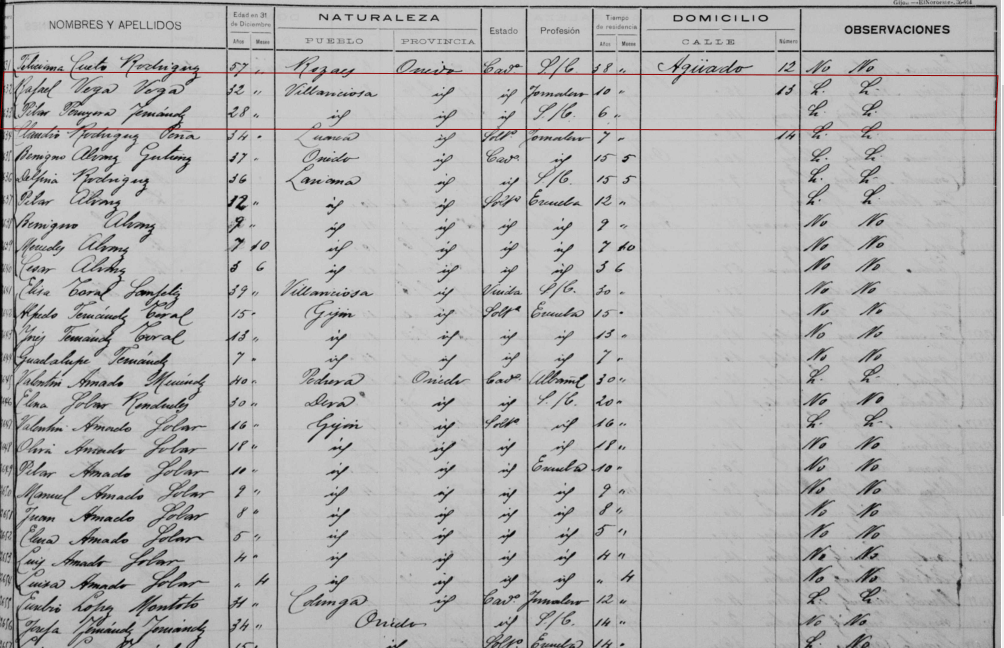 NOMBRES Y APELLIDOS Edad en 31 de Diciembre Años Meses NATURALEZA PUEBLO PROVINCIA Estado Profesión Tiempo de residencia Años Meses DOMICILIO CALLE Número OBSERVACIONES
Cueto Rodriguez 57 " Oviedo Cada. S/C. 38 " Agüado 12 No No
Rafael Vega Vega 32 " Villaviciosa id id Jornalero 10 " 13 L. L.
Pilar Fernández 28 " id id id S./C. 6 " L. L.
Claudio Rodriguez Peña 34 " Luarca id Soltº Jornalero 7 " 14 L. L.
Benigno Alvarez Gutierrez 37 " Oviedo id Cadº id 15 5 L. L.
Delfina Rodriguez 36 id id S/C. 15 5 L. L.
Pilar Alvarez 12 " id id Soltª Escuela 12 " L. L.
Benigno Alvarez 9 " id id id id 9 " No No
Mercedes Alvarez 7 10 id id id id 7 10 No No
Cesar Alvarez 3 6 id id id id 3 6 No No
Elisa Toral 39 " Villaviciosa id Viuda S/C. 30 " No No
Alfredo Fernández Toral 15 " Gijón id Soltº Escuela 15 " No No
Inés Fernández Toral 13 " id id id id 13 " No No
Guadalupe Fernández 7 " id id id id 7 " No No
Valentin Amado Menéndez 40 " Oviedo Cadº Albañil 30 " L. L.
Elena Tobar Rendueles 30 " Deva id id S./C. 20 " No No
Valentin Amado Tobar 16 " Gijón id Soltº id 16 " L. L.
Amado Tobar 18 " id id id id 18 " No No
Pilar Amado Tobar 10 " id id id Escuela 10 " No No
Manuel Amado Tobar 9 " id id id id 9 " No No
Juan Amado Tobar 8 " id id id id 8 " No No
Elena Amado Tobar 5 " id id id id 5 " No No
Luis Amado Tobar 4 " id id id id 4 " No No
Luisa Amado Tobar " 4 id id id id " 4 No No
Eusebio Lopez Montoto 31 " Colunga id Cadº Jornalero 12 " L. L.
Josefa Fernández Fernández 34 " Oviedo id S/C. 14 " No No
id Soltº Escuela 14 L. No